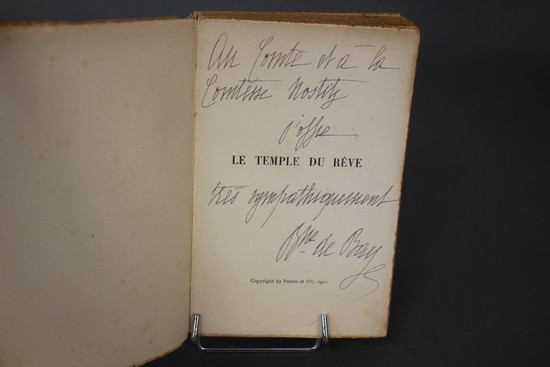 Au Comte et à la
Comtesse Nostitz
j'offre
LE TEMPLE DU RÊVE
très sympathiquement
Bne de Baye
Copyright by Perrin et Cie,